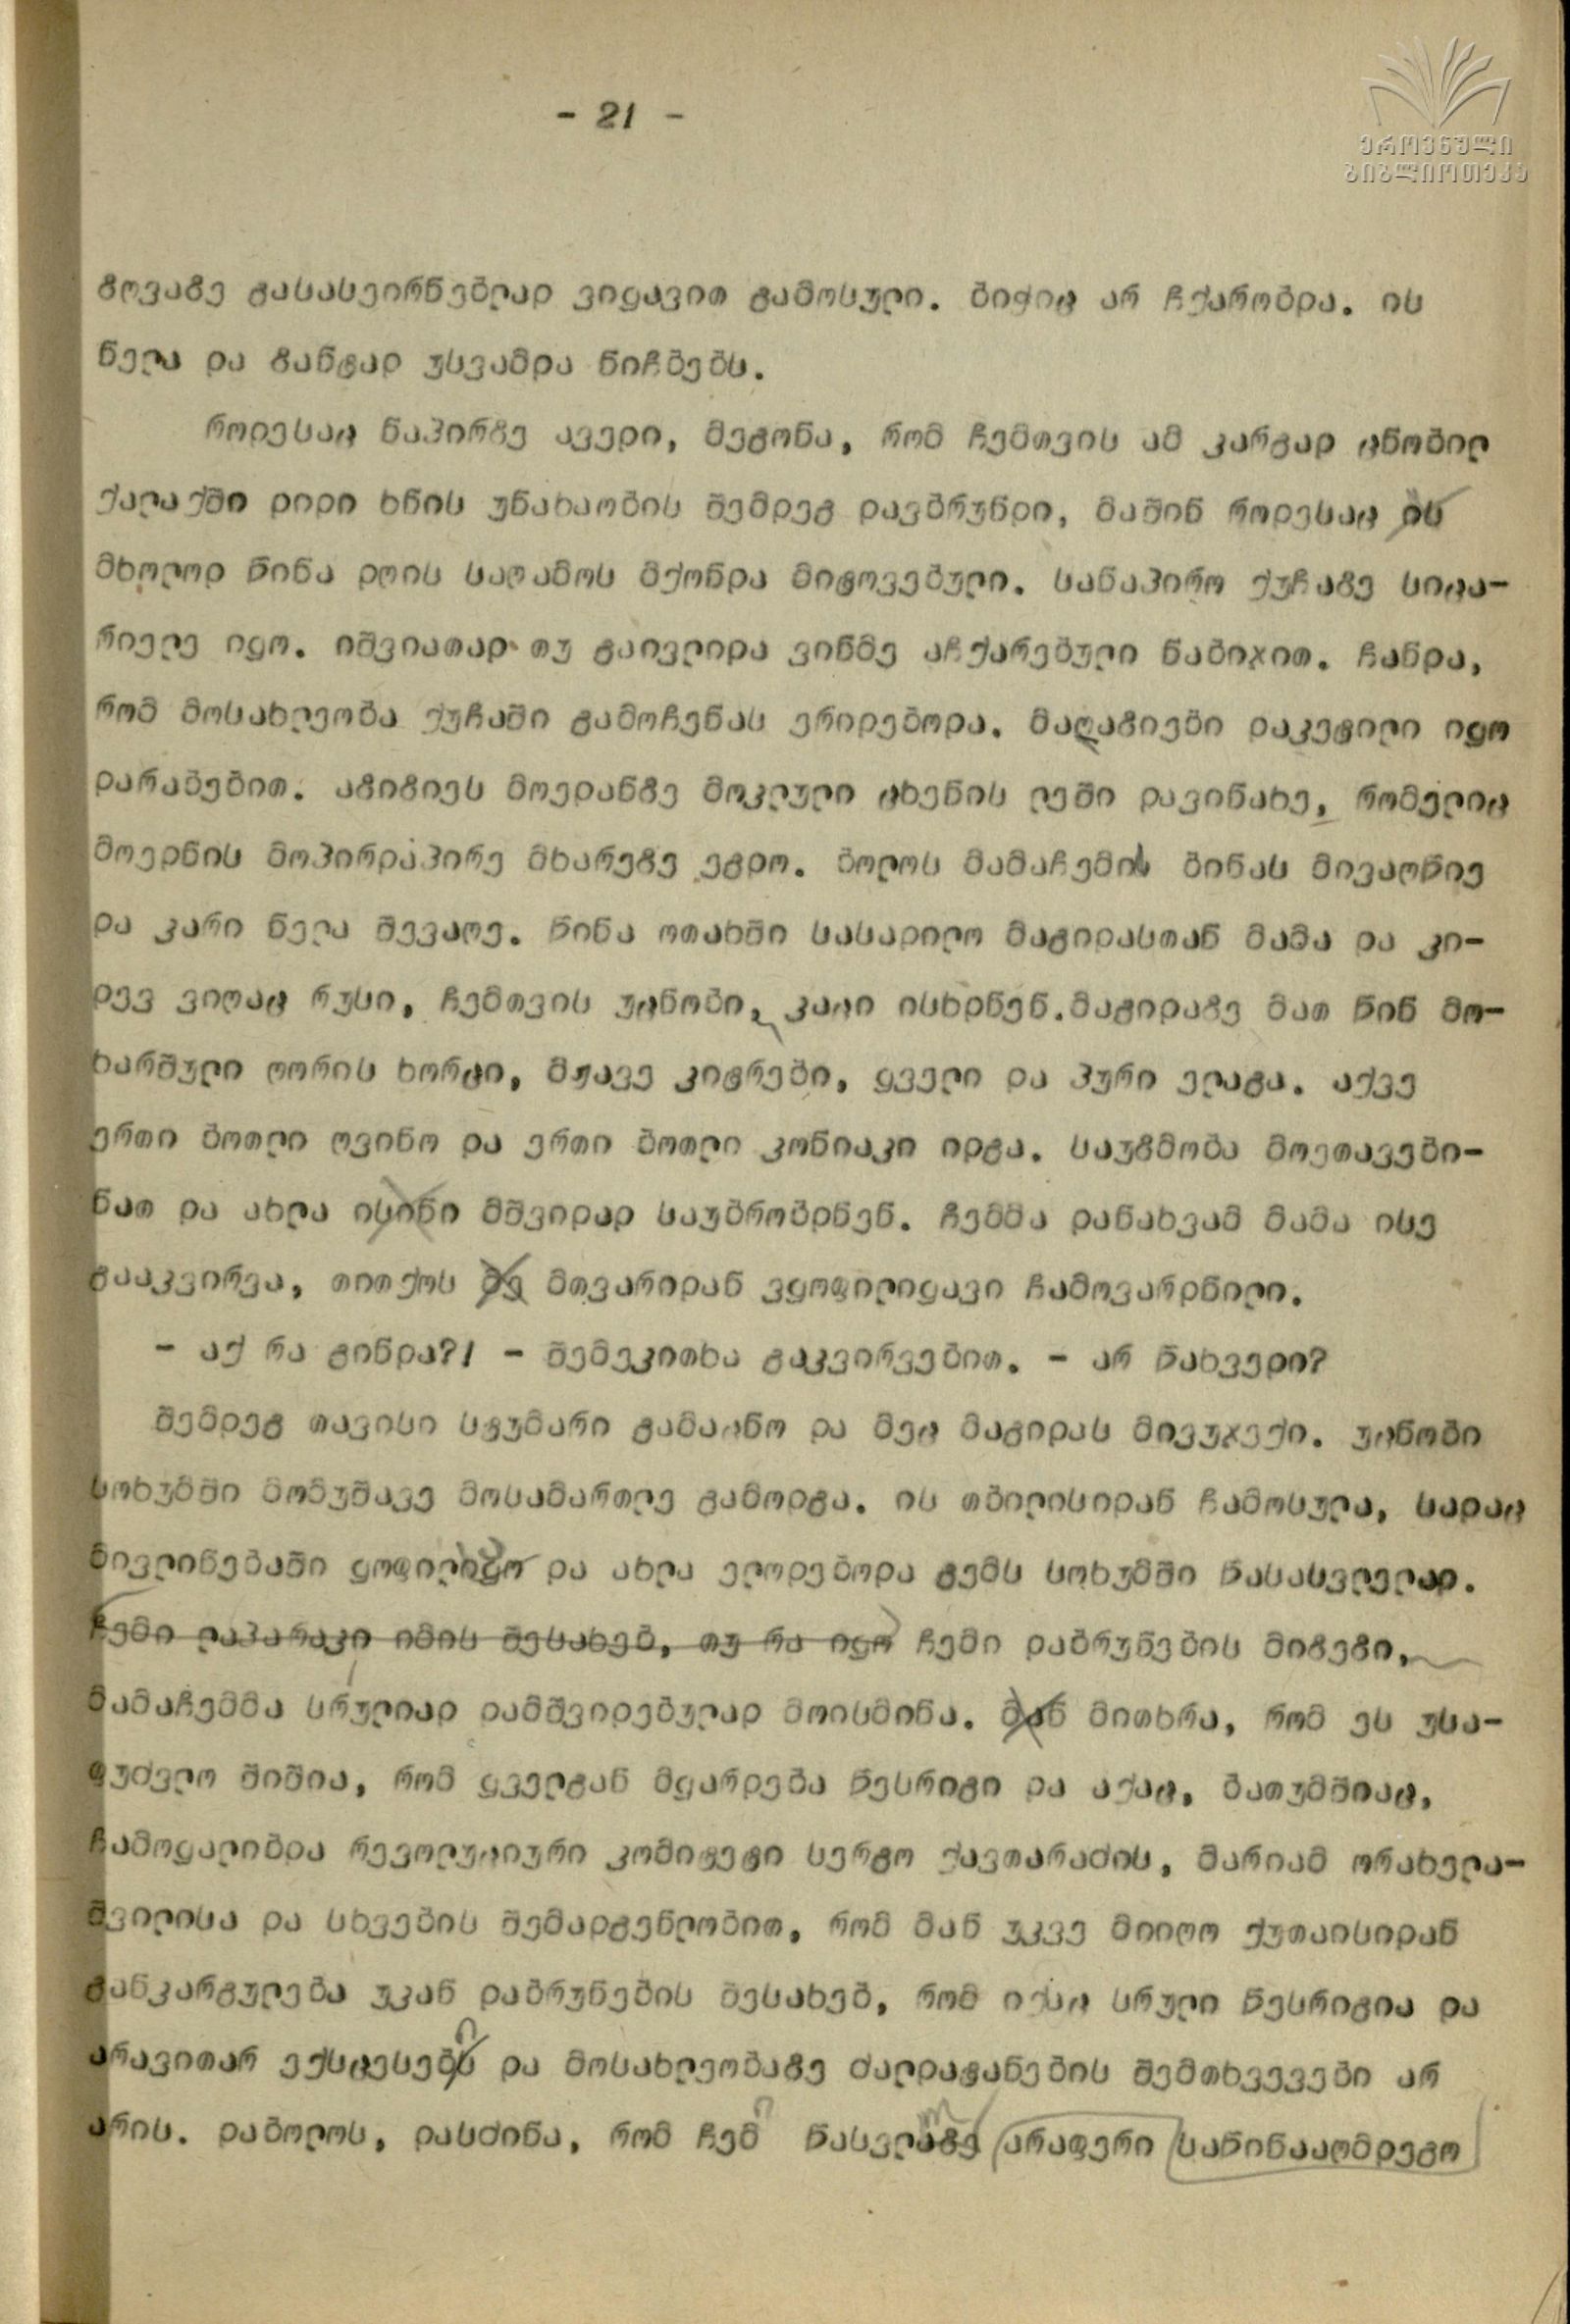 - 21 -
ეროვნული
ბიბლიოთეკა
ზღვაზე გასასეირნებლად ვიყავით გამოსული. ბიჭიც არ ჩქარობდა. ის
ნელა და ზანტად უსვამდა ნიჩბებს.
როდესაც ნაპირზე ავედი, მეგონა, რომ ჩემთვის ამ კარგად ცნობილ
ქალაქში დიდი ხნის უნახაობის შემდეგ დავბრუნდი, მაშინ როდესაც ის
მხოლოდ წინა დღის საღამოს მქონდა მიტოვებული. სანაპირო ქუჩაზე სიცა-
რიელე იყო. იშვიათად თუ გაივლიდა ვინმე აჩქარებული ნაბიჯით. ჩანდა,
რომ მოსახლეობა ქუჩაში გამოჩენას ერიდებოდა. მაღაზიები დაკეტილი იყო
დარაბებით. აზიზიეს მოედანზე მოკლული ცხენის ლეში დავინახე, რომელიც
მოედნის მოპირდაპირე მხარეზე ეგდო. ბოლოს მამაჩემის ბინას მივაღწიე
და კარი ნელა შევაღე. წინა ოთახში სასადილო მაგიდასთან მამა და კი-
დევ ვიღაც რუსი, ჩემთვის უცნობი, კაცი ისხდნენ. მაგიდაზე მათ წინ მო-
ხარშული ღორის ხორცი, მჟავე კიტრები, ყველი და პური ელაგა. აქვე
ერთი ბოთლი ღვინო და ერთი ბოთლი კონიაკი იდგა. საუზმობა მოეთავები-
ნათ და ახლა ისინი მშვიდად საუბრობდნენ. ჩემმა დანახვამ მამა ისე
გააკვირვა, თითქოს მე მთვარიდან ვყოფილიყავი ჩამოვარდნილი.
- აქ რა გინდა?! - შემეკითხა გაკვირვებით. - არ წახვედი?
შემდეგ თავისი სტუმარი გამაცნო და მეც მაგიდას მივუჯექი. უცნობი
სოხუმში მომუშავე მოსამართლე გამოდგა. ის თბილისიდან ჩამოსულა, სადაც
მივლინებაში ყოფილიყო და ახლა ელოდებოდა გემს სოხუმში წასასვლელად.
ჩემი ლაპარაკი იმის შესახებ, თუ რა იყო ჩემი დაბრუნების მიზეზი,
მამაჩემმა სრულიად დამშვიდებულად მოისმინა. მან მითხრა, რომ ეს უსა-
ფუძვლო შიშია, რომ ყველგან მყარდება წესრიგი და აქაც, ბათუმშიაც,
ჩამოყალიბდა რევოლუციური კომიტეტი სერგო ქავთარაძის, მარიამ ორახელა-
შვილისა და სხვების შემადგენლობით, რომ მან უკვე მიიღო ქუთაისიდან
განკარგულება უკან დაბრუნების შესახებ, რომ იქაც სრული წესრიგია და
არავითარ ექსცესებს და მოსახლეობაზე ძალდატანების შემთხვევები არ
არის. დაბოლოს, დასძინა, რომ ჩემ წასვლაზე არაფერი საწინააღმდეგო